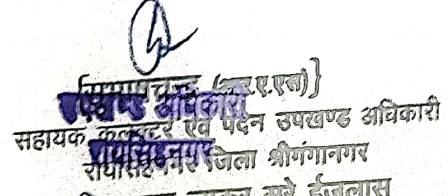 (आर.ए.एस)}
उपखण्ड अधिकारी
सहायक कलक्टर एवं पदेन उपखण्ड अधिकारी
रायसिंहनगर
रायसिंहनगर जिला श्रीगंगानगर